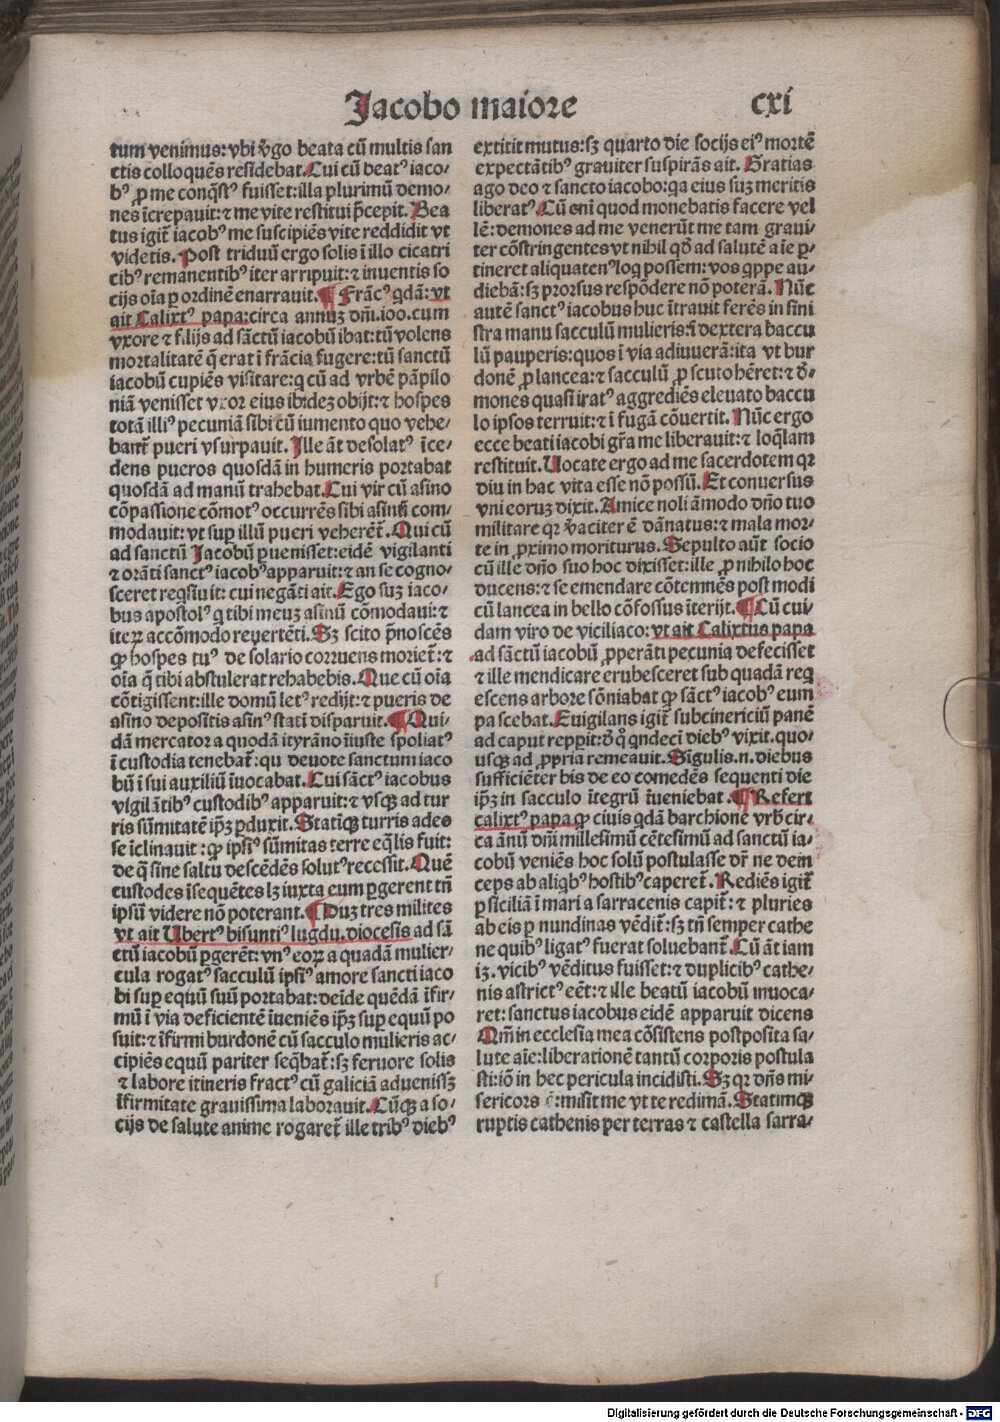 Jacobo maiore cxi
tum venimus: vbi v̓go beata cū multis san
ctis colloquēs residebat. Cui cū beatꝰ iaco-
bꝰ ꝓ me conq̄stꝰ fuisset: illa plurimū demo-
nes īcrepauit: ⁊ me vite restitui p̄cepit. Bea
tus igit̄ iacobꝰ me suscipiēs vite reddidit vt
videtis. Post triduū ergo solis ī illo cicatri
cibꝰ remanentibꝰ iter arripuit: ⁊ inuentis so
cijs oīa ꝑ ordinē enarrauit. ¶ Frācꝰ qdā: vt
ait Calixtꝰ papa: circa annuꝫ dn̄i. 100. cum
vxore ⁊ filijs ad sāctū iacobū ibat: tū volens
mortalitatē q̄ erat ī frācia fugere: tū sanctū
iacobū cupiēs visitare: q cū ad vrbē pāpilo
niā venisset vxor eius ibidez obijt: ⁊ hospes
totā illiꝰ pecuniā sibi cū iumento quo vehe-
bant̄ pueri vsurpauit. Ille āt desolatꝰ īce-
dens pueros quosdā in humeris portabat
quosdā ad manū trahebat. Cui vir cū asino
cōpassione cōmotꝰ occurrēs sibi asinū com-
modauit: vt sup illū pueri veherēt̄. Qui cū
ad sanctū Jacobū ꝑuenisset: eidē vigilanti
⁊ orāti sanctꝰ iacobꝰ apparuit: ⁊ an se cogno-
sceret reqsiuit: cui negāti ait. Ego suꝫ iaco-
bus apostolꝰ q tibi meuꝫ asinū cōmodaui: ⁊
iteꝝ accōmodo reuertēti. Sꝫ scito p̄noscēs
ꝙ hospes tuꝰ de solario corruens moriet̄: ⁊
oīa q̄ tibi abstulerat rehabebis. Que cū oīa
cōtigissent: ille domū letꝰ redijt: ⁊ pueris de
asino depositis asinꝰ statī disparuit. ¶ Qui-
dā mercator a quodā ityrāno īiuste spoliatꝰ
ī custodia tenebat̄: qu deuote sanctum iaco
bū ī sui auxiliū īuocabat. Cui sāctꝰ iacobus
vigilātibꝰ custodibꝰ apparuit: ⁊ vsqꝫ ad tur
ris sūmitatē ipꝫ ꝑduxit. Statīqꝫ turris adeo
se īclinauit: ꝙ ipsiꝰ sūmitas terre eq̄lis fuit:
de q̄ sine saltu descēdēs solutꝰ recessit. Quē
custodes īsequētes lꝫ iuxta eum ꝑgerent tn̄
ipsū videre nō poterant. ¶ Duꝫ tres milites
vt ait Ubertꝰ bisuntiꝰ lugdu. diocesis ad sā
ctū iacobū ꝑgerēt: vnꝰ eoꝝ a quadā mulier-
cula rogatꝰ sacculū ipsiꝰ amore sancti iaco
bi sup equū suū portabat: deīde quēdā īfir-
mū ī via deficientē īueniēs ipꝫ sup equū po
suit: ⁊ īfirmi burdonē cū sacculo mulieris ac-
cipiēs equū pariter seq̄bat̄: sꝫ feruore solis
⁊ labore itineris fractꝰ cū galiciā aduenissꝫ
īfirmitate grauissima laborauit. Cūqꝫ a so-
cijs de salute anime rogaret̄ ille tribꝰ diebꝰ
extitit mutus: sꝫ quarto die socijs eiꝰ mortē
expectātibꝰ grauiter suspirās ait. Gratias
ago deo ⁊ sancto iacobo: qa eius suꝫ meritis
liberatꝰ. Cū eni quod monebatis facere vel
lē: demones ad me venerūt me tam graui-
ter cōstringentes vt nihil qd̓ ad salutē aīe ꝑ-
tineret aliquatenꝰ loq possem: vos qppe au-
diebā: sꝫ prorsus respōdere nō poterā. Nūc
autē sanctꝰ iacobus huc ītrauit ferēs in sini
stra manu sacculū mulieris: ī dextera baccu
lū pauperis: quos ī via adiuuerā: ita vt bur
donē ꝓ lancea: ⁊ sacculū ꝓ scuto hēret: ⁊ d̓-
mones quasi iratꝰ aggrediēs eleuato baccu
lo ipsos terruit: ⁊ ī fugā cōuertit. Nūc ergo
ecce beati iacobi gr̄a me liberauit: ⁊ loq̄lam
restituit. Uocate ergo ad me sacerdotem qꝛ
diu in hac vita esse nō possū. Et conuersus
vni eoruꝫ dixit. Amice noli āmodo dn̄o tuo
militare qꝛ v̓aciter ē dānatus: ⁊ mala mor-
te in ꝓximo moriturus. Sepulto aūt socio
cū ille dn̄o suo hoc dixisset: ille ꝓ nihilo hoc
ducens: ⁊ se emendare cōtemnēs post modi
cū lancea in bello cōfossus īterijt. ¶ Cū cui-
dam viro de viciliaco: vt ait Calixtus papa
ad sāctū iacobū ꝓperāti pecunia defecisset
⁊ ille mendicare erubesceret sub quadā req
escens arbore sōniabat ꝙ sāctꝰ iacobꝰ eum
pascebat. Euigilans igit̄ subcinericiū panē
ad caput repꝑit: d̓ qͦ qndeci diebꝰ vixit. quo-
usqꝫ ad ꝓpria remeauit. Sīgulis. n. diebus
sufficiēter bis de eo comedēs sequenti die
ipꝫ in sacculo ītegrū īueniebat. ¶ Refert
calixtꝰ papa ꝙ ciuis qdā barchione vrb̓ cir-
ca ānū dn̄i millesimū cētesimū ad sanctū ia-
cobū veniēs hoc solū postulasse dr̄ ne dein
ceps ab aliqbꝰ hostibꝰ caperet̄. Rediēs igit̄
ꝑ siciliā ī mari a sarracenis capit̄: ⁊ pluries
ab eis ꝑ nundinas vēdit̄: sꝫ tn̄ semper cathe
ne quibꝰ ligatꝰ fuerat soluebant̄. Cū āt iam
iꝫ. vicibꝰ vēditus fuisset: ⁊ duplicibꝰ cathe-
nis astrictꝰ eēt: ⁊ ille beatū iacobū inuoca-
ret: sanctus iacobus eidē apparuit dicens
Qm̄ in ecclesia mea cōsistens postposita sa-
lute aīe: liberationē tantū corporis postula
sti: iō in hec pericula incidisti. Sꝫ qꝛ dn̄s mi-
sericors ē: misit me vt te redimā. Statimqꝫ
ruptis cathenis per terras ⁊ castella sarra-
Digitalisierung gefördert durch die Deutsche Forschungsgemeinschaft - DFG